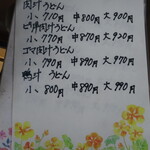 肉汁うどん
小 710円 中800円 大900円
ピリ辛肉汁うどん
小 770円 中870円 大920円
ゴマ肉汁うどん
小 790円 中890円 大970円
鴨汁 うどん
小 800円 中890円 大990円